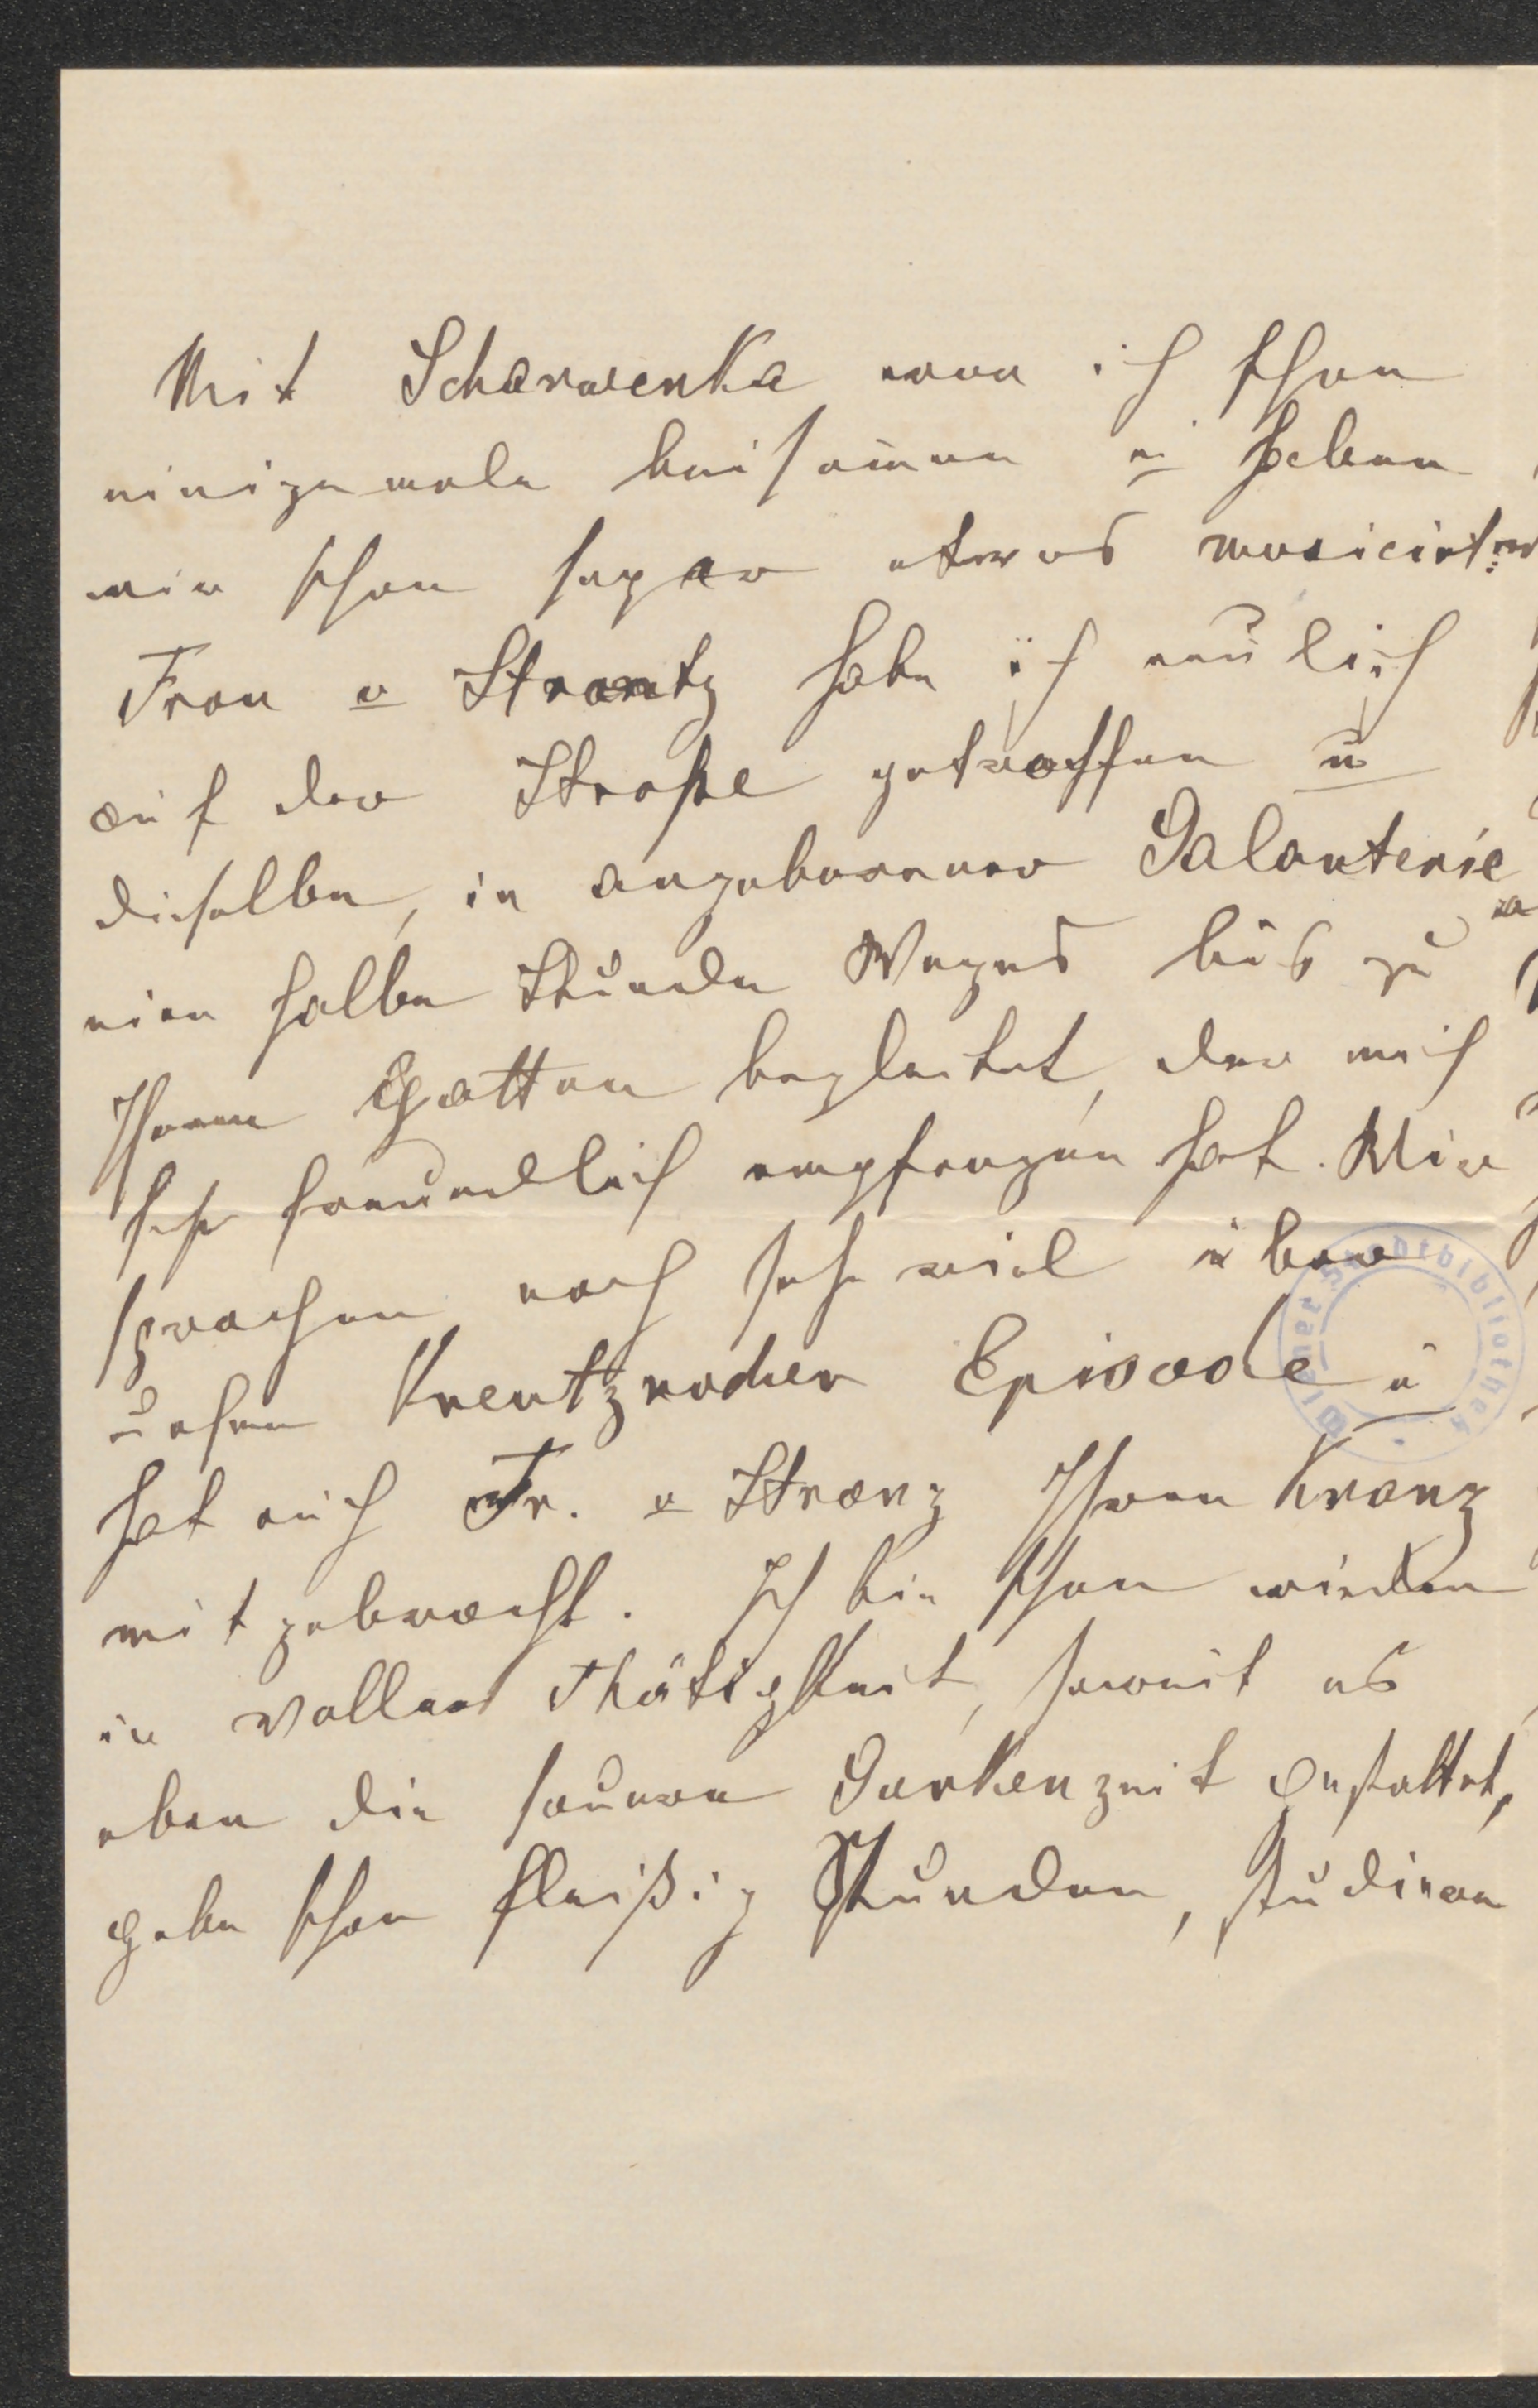 Mit Scharwenka war ich schon
einigemale beisam̄en u haben
wir schon sogar etwas musicirt.
Frau v Strantz habe ich neulich
auf der Straße getroffen u
dieselbe, in angeborener Galanterie
eine halbe Stunde Weges bis zu
Ihrem Gatten begleitet, der mich
sehr freundlich empfangen hat. Wir
sprachen noch sehr viel über
Kreutznacher Episode u
hat auch Fr. v Stranz Ihren Kranz
mitgebracht. Ich bin schon wieder
in voller Thätigkeit, soweit es
eben die sauere Gurkenzeit gestattet,
gebe schon fleißig Stunden, studiere
Wiener Stadtbibliothek